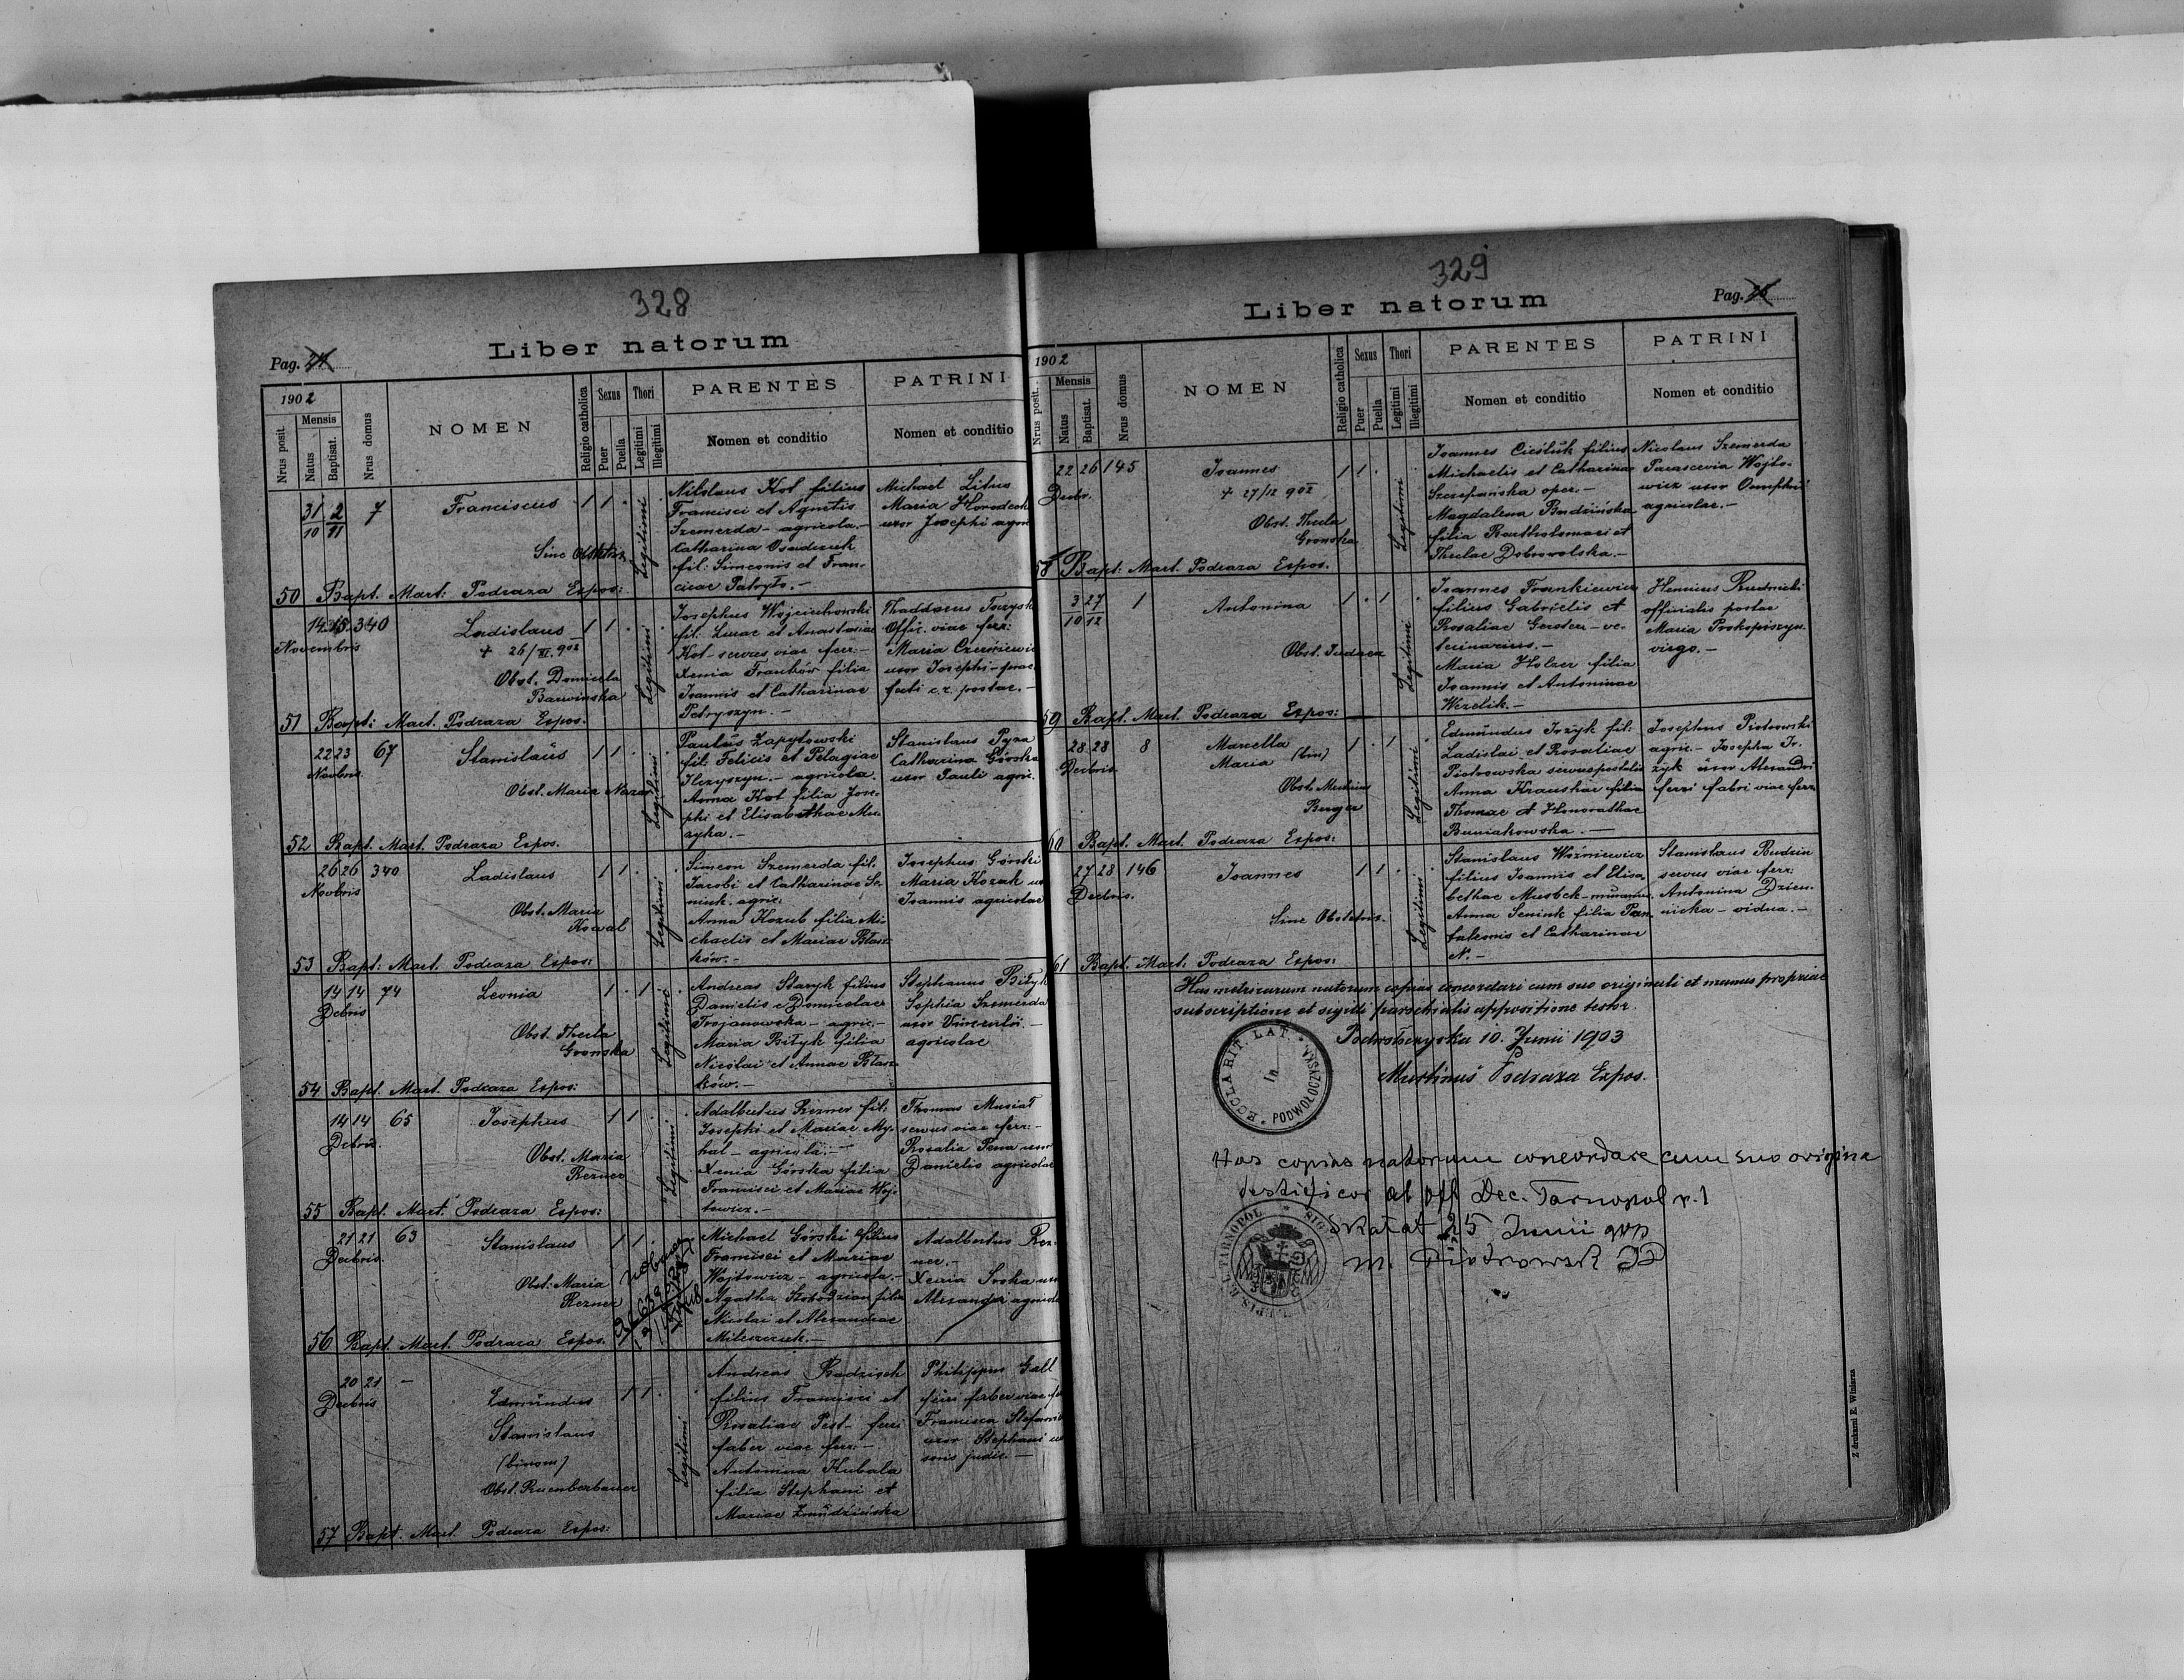 328
Liber natorum
Pag.
1902
Nrus posit.
Mensis
Natus
Baptisat.
Nrus domus
NOMEN
Religio catholica
Sexus
Puer
Puella
Thori
Legitimi
Illegitimi
PARENTES
Nomen et conditio
PATRINI
Nomen et conditio
31/10 2/11 7 Franciscus 1 1 Legitimi
Sine Obstetr.
Nikolaus Kot filius
Francisci et Agnetis
Szemerda - agricola.-
Catharina
fil: Simeonis et Fran-
cicae Patryło.-
Michael Litus
Maria
uxor Josephi agric
50 Bapt. Mart: Podraza Expos:
14 15 340
Novembris
Ladislaus 1 1 Legitimi
+ 26/XI. 902
Obst. Domicela
Barwinska
Josephus Wojciechowski
fil. Lucae et Anastasiae
Kot - servus viae ferr:-
Xenia Franków filia
Joannis et Catharinae
Petryszyn.-
Thaddaeus
Offic. viae ferr:
Maria
uxor Josephi - prae-
fecti c.r. postae.-
51 Bapt: Mart. Podraza Expos.
22 23 67
Novbris.
Stanislaus 1 1 Legitimi
Obst. Maria Nazar
Paulus Zapytowski
fil: Felicis et Pelagiae
Ilczyszyn. - agricola.
Anna Kot filia Jose-
phi et Elisabethae Mu-
zyka.-
Stanislaus Pyza
Catharina Górska
uxor Pauli agric.
52 Bapt. Mart. Podraza Expos.
26 26 340
Novbris
Ladislaus 1 1 Legitimi
Obst. Maria
Kowal
Simeon Szemerda fil.
Jacobi et Catharinae Se-
niuk. agric.
Anna Kozub filia Mi-
chaelis et Mariae Błasz-
ków.-
Josephus Górski
Maria Kozak
Joannis agricolae
53 Bapt: Mart. Podraza Expos:
14 14 74
Debris
Leonia 1 1 Legitimi
Obst. Thecla
Gronska
Andreas Staryk filius
Danielis et Domicelae
Trojanowska - agric.-
Maria Bityk filia
Nicolai et Annae Błasz-
ków.-
Stephanus Bityk
Sophia Szemerda
uxor Vincentii.-
agricolae
54 Bapt. Mart. Podraza Expos:
14 14 65
Debris.
Josephus 1 1 Legitimi
Obst. Maria
Rezner
Adalbertus Rezner fil:
Josephi et Mariae My-
hal - agricola.-
Xenia Górska filia
Francisci et Mariae Woj-
towicz.-
Thomas Musiał
servus viae ferr:-
Rosalia Pana uxor
Danielis agricolae
55 Bapt. Mart. Podraza Expos:
21 21 63
Decbris.
Stanislaus 1 1
Obst: Maria
Rezner
Michael Górski filius
Francisci et Mariae
Wojtowicz - agricola.-
Agatha filia
Nicolai et Alexandrae
Adalbertus Rez-
ner.-
Xenia
Alexander agricola
56 Bapt. Mart. Podraza Expos.
20 21 -
Decbris
Edmundus 1 1 Legitimi
Stanislaus
(binom)
Obst.
Andreas
filius Francisci et
Rosaliae Pest - ferri
faber viae ferr:-
Antonina Kubala
filia Stephani et
Mariae Zmudzińska
Philippus Gall
ferri faber viae
Francisca
uxor Stephani
judic.-
57 Bapt. Mart. Podraza Expos:
329
Liber natorum
Pag.
1902
Nrus posit.
Mensis
Natus
Baptisat.
Nrus domus
NOMEN
Religio catholica
Sexus
Puer
Puella
Thori
Legitimi
Illegitimi
PARENTES
Nomen et conditio
PATRINI
Nomen et conditio
22 26 145
Decbr.
Joannes 1 1 Legitimi
+ 27/12 902
Obst. Thecla
Gronska
Joannes Cieśluk filius
Michaelis et Catharinae
Szczepańska oper.-
Magdalena Budzińska
filia Bartholomaei et
Theclae Dobrowolska.-
Nicolaus Szemerda
Parascevia Wojto-
wicz uxor Onuphrii
agricolae.-
58 Bapt. Mart. Podraza Expos.
3/10 27/12 1 Antonina 1 1 Legitimi
Obst. Judaea
Joannes Frankiewicz
filius Gabrielis et
Rosaliae - ve-
terinarius.-
Maria Holzer filia
Joannis et Antoninae
Wezelik.-
Henricus Rudnicki
officialis postae
Maria Prokopiszyn
virgo.-
59 Bapt. Mart. Podraza Expos:
28 28 8
Decbris.
Marcella 1 1 Legitimi
Maria (bin)
Obst.
Berger
Edmundus Jozyk fil:
Ladislai et Rosaliae
Piotrowska servus postalis
Anna Krauskae filia
Thomae et Honorathae
Buniakowska.-
Josephus Piotrowski
agric.- Josepha Jo-
zyk uxor Alexandri
ferri fabri viae ferr.
60 Bapt. Mart. Podraza Expos:
27 28 146
Decbris.
Joannes 1 1 Legitimi
Sine Obstetric.
Stanislaus Woźniewicz
filius Joannis et Elisa-
bethae
Anna Seniuk filia Pan-
taleonis et Catharinae
N.-
Stanislaus Budzin
servus viae ferr:
Antonina Dzien-
nicka - vidua.-
61 Bapt. Mart. Podraza Expos:
Has metricarum natorum copias concordari cum suo originali et manus propriae
subscriptione et sigilli parochialis appositione testor.
Podwołoczyska 10. Junii 1903
Martinus Podraza Expos.
ECCLA RIT. LAT. in PODWOŁOCZYSKA
Has copias natorum concordare cum suo origina
testificor ab off Dec. Tarnopol r. l
Skałat 25 Junii 903
M. Piotrowsk
TARNOPOL SIG
Z drukarni E. Winiarza